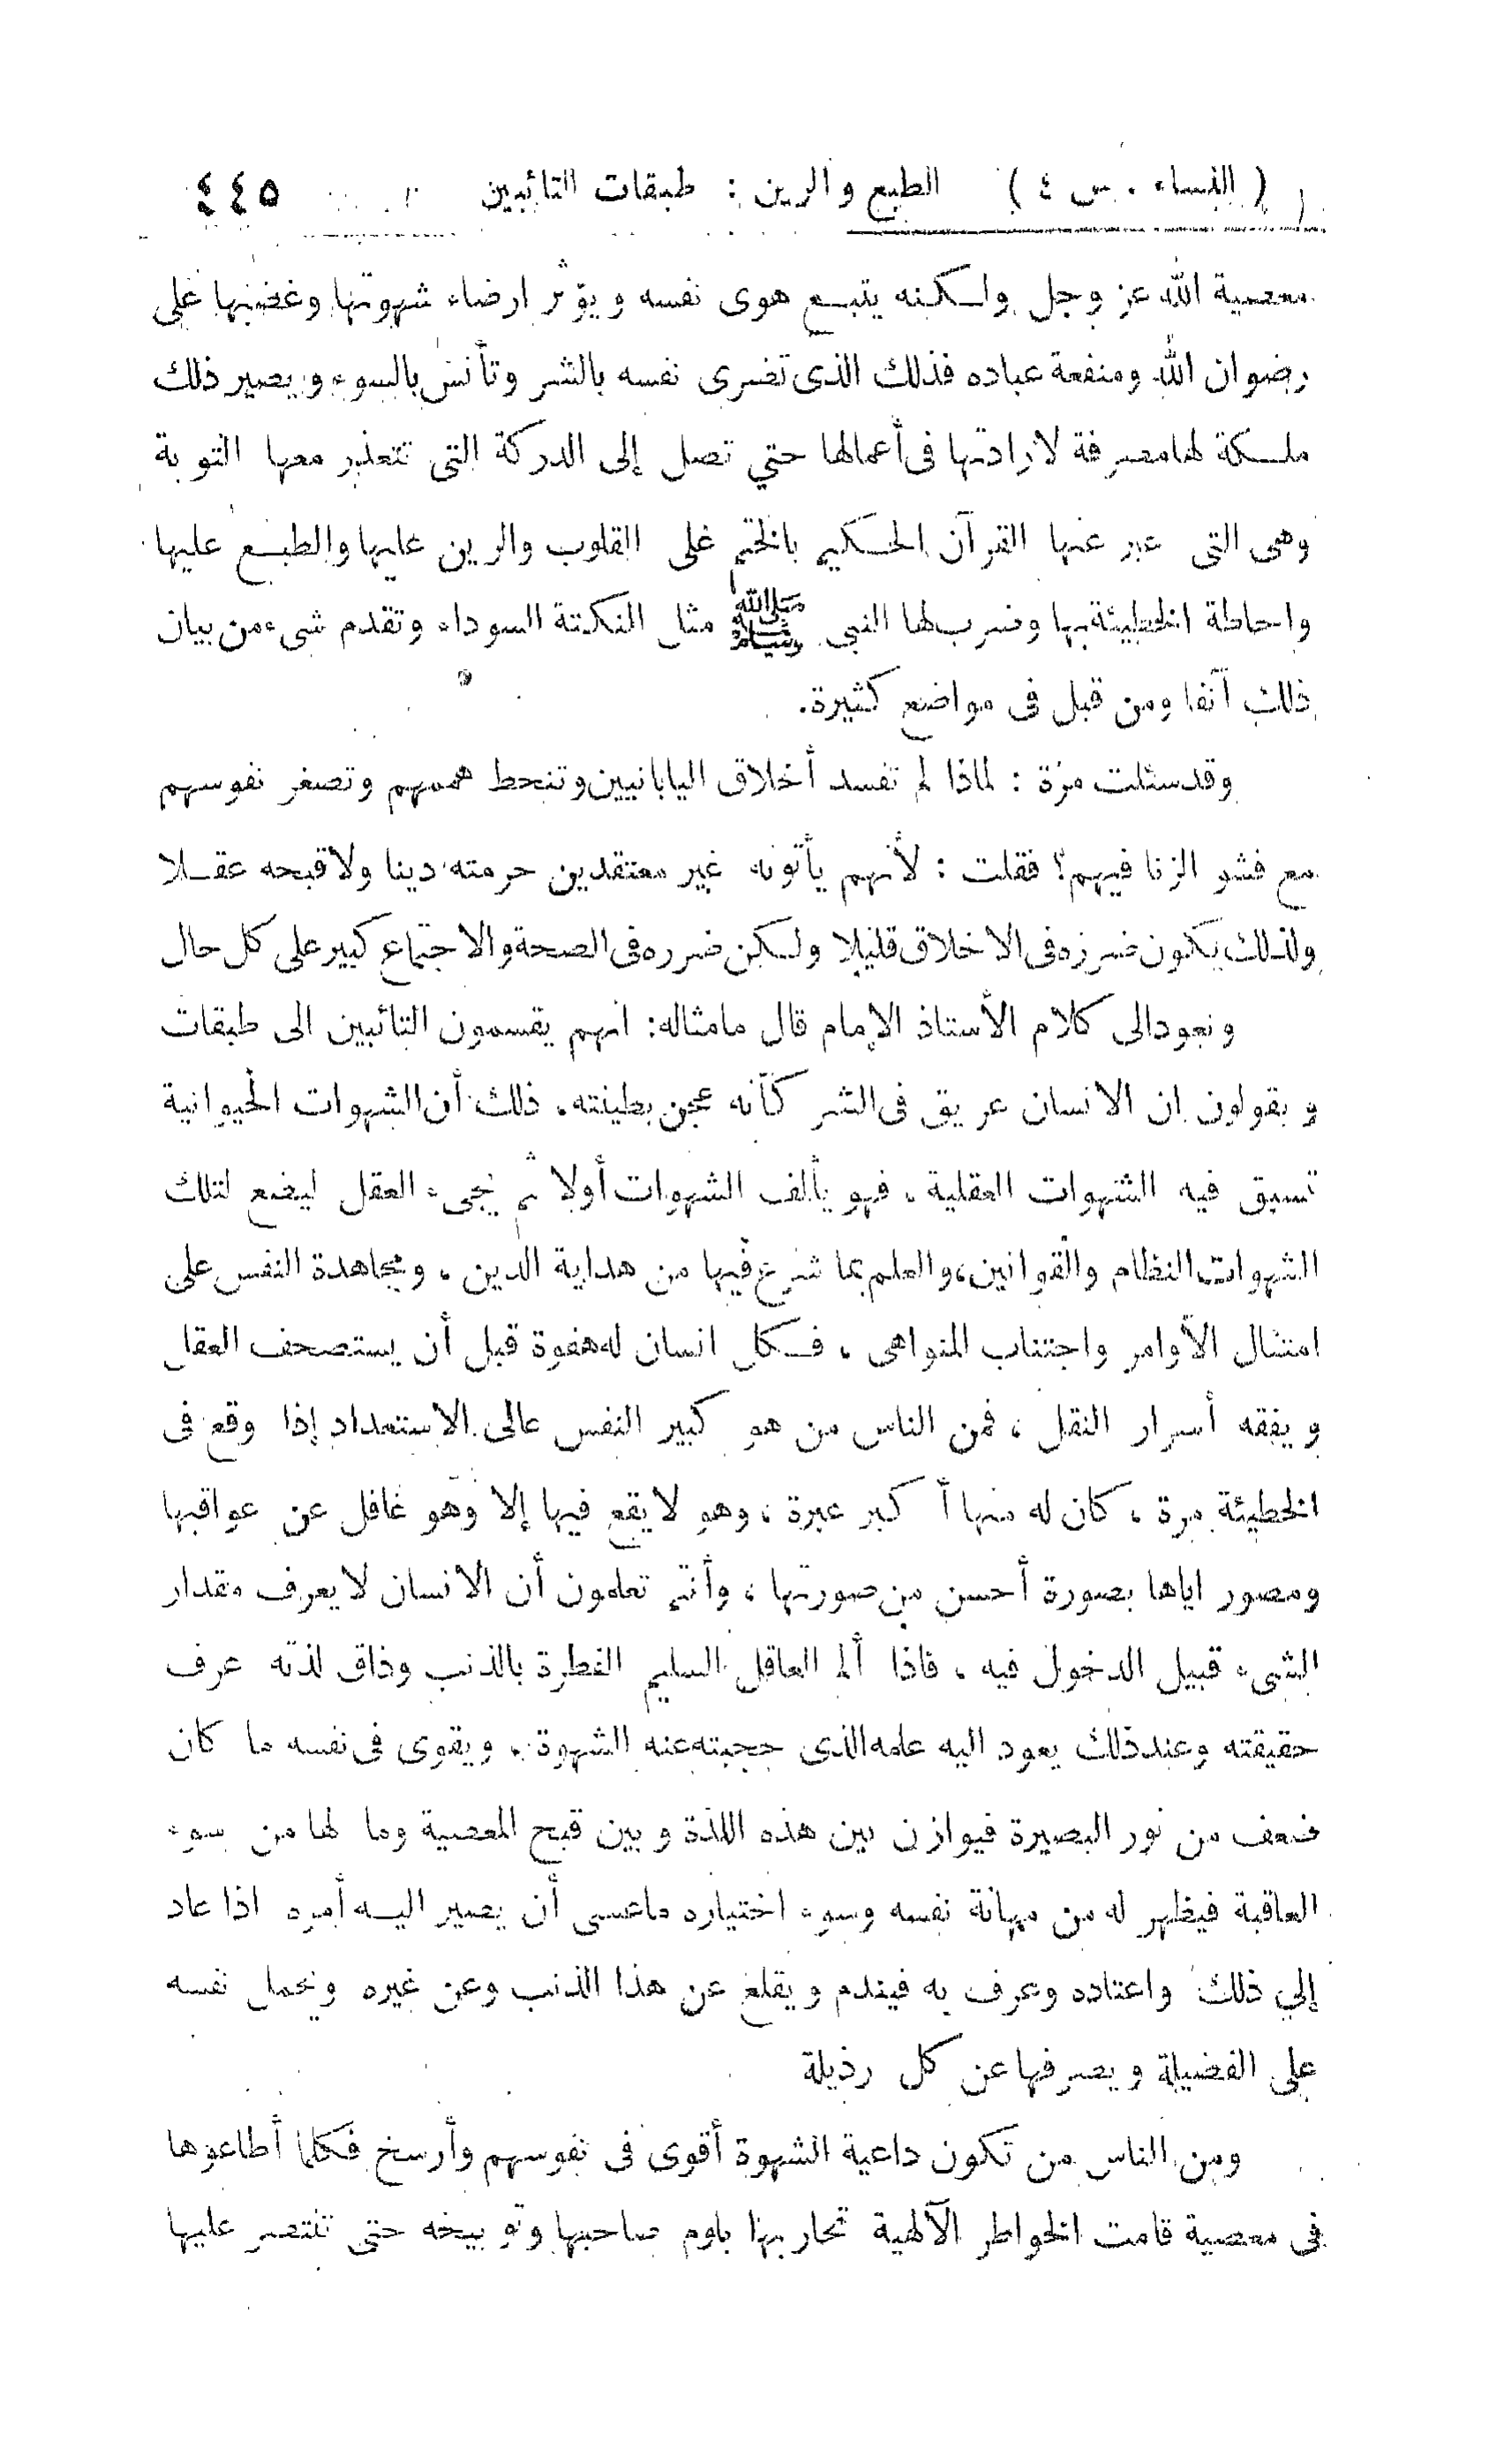 ( النساء . س ٤ ) الطبع والرين : طبقات التائبين ٤٤٥
معصية الله عز وجل ولكنه يتبع هوى نفسه ويؤثر ارضاء شهوتها وغضبها على
رضوان الله ومنفعة عباده فذلك الذى تضرى نفسه بالشر وتأنس بالسوء ويصير ذلك
ملكة لها مصرفة لارادتها فى أعمالها حتي تصل إلى الدركة التى تتعذر معها التوبة
وهى التى عبر عنها القرآن الحكيم بالختم على القلوب والرين عليها والطبع عليها
واحاطة الخطيئة بها وضرب لها النبى صلى الله عليه وسلم مثل النكتة السوداء وتقدم شىء من بيان
ذلك آنفا ومن قبل فى مواضع كثيرة.
وقد سئلت مرة : لماذا لم تفسد أخلاق اليابانيين وتنحط هممهم وتصغر نفوسهم
مع فشو الزنا فيهم؟ فقلت : لأنهم يأتونه غير معتقدين حرمته دينا ولا قبحه عقلا
ولذلك يكون ضرره فى الاخلاق قليلا ولكن ضرره فى الصحة والاجتماع كبير على كل حال
ونعود الى كلام الأستاذ الإمام قال ما مثاله: انهم يقسمون التائبين الى طبقات
ويقولون ان الانسان عريق فى الشر كأنه عجن بطينته. ذلك أن الشهوات الحيوانية
تسبق فيه الشهوات العقلية ، فهو يألف الشهوات أولا ثم يجىء العقل ليضع لتلك
الشهوات النظام والقوانين، والعلم بما شرع فيها من هداية الدين ، ومجاهدة النفس على
امتثال الأوامر واجتناب النواهى ، فكل انسان له هفوة قبل أن يستصحف العقل
ويفقه أسرار النقل ، فمن الناس من هو كبير النفس عالى الاستعداد إذا وقع فى
الخطيئة مرة ، كان له منها أكبر عبرة ، وهو لا يقع فيها إلا وهو غافل عن عواقبها
ومصور اياها بصورة أحسن من صورتها ، وأنتم تعلمون أن الانسان لا يعرف مقدار
الشىء قبيل الدخول فيه ، فاذا ألم العاقل السليم الفطرة بالذنب وذاق لذته عرف
حقيقته وعند ذلك يعود اليه علمه الذى حجبته عنه الشهوة ، ويقوى فى نفسه ما كان
ضعف من نور البصيرة فيوازن بين هذه اللذة وبين قبح المعصية وما لها من سوء
العاقبة فيظهر له من مهانة نفسه وسوء اختياره ما عسى أن يصير اليه أمره اذا عاد
إلي ذلك واعتاده وعرف به فيندم ويقلع عن هذا الذنب وعن غيره ويحمل نفسه
على الفضيلة ويصرفها عن كل رذيلة
ومن الناس من تكون داعية الشهوة أقوى فى نفوسهم وأرسخ فكلما أطاعوها
فى معصية قامت الخواطر الآلهية تحاربها بلوم صاحبها وتوبيخه حتى تنتصر عليها